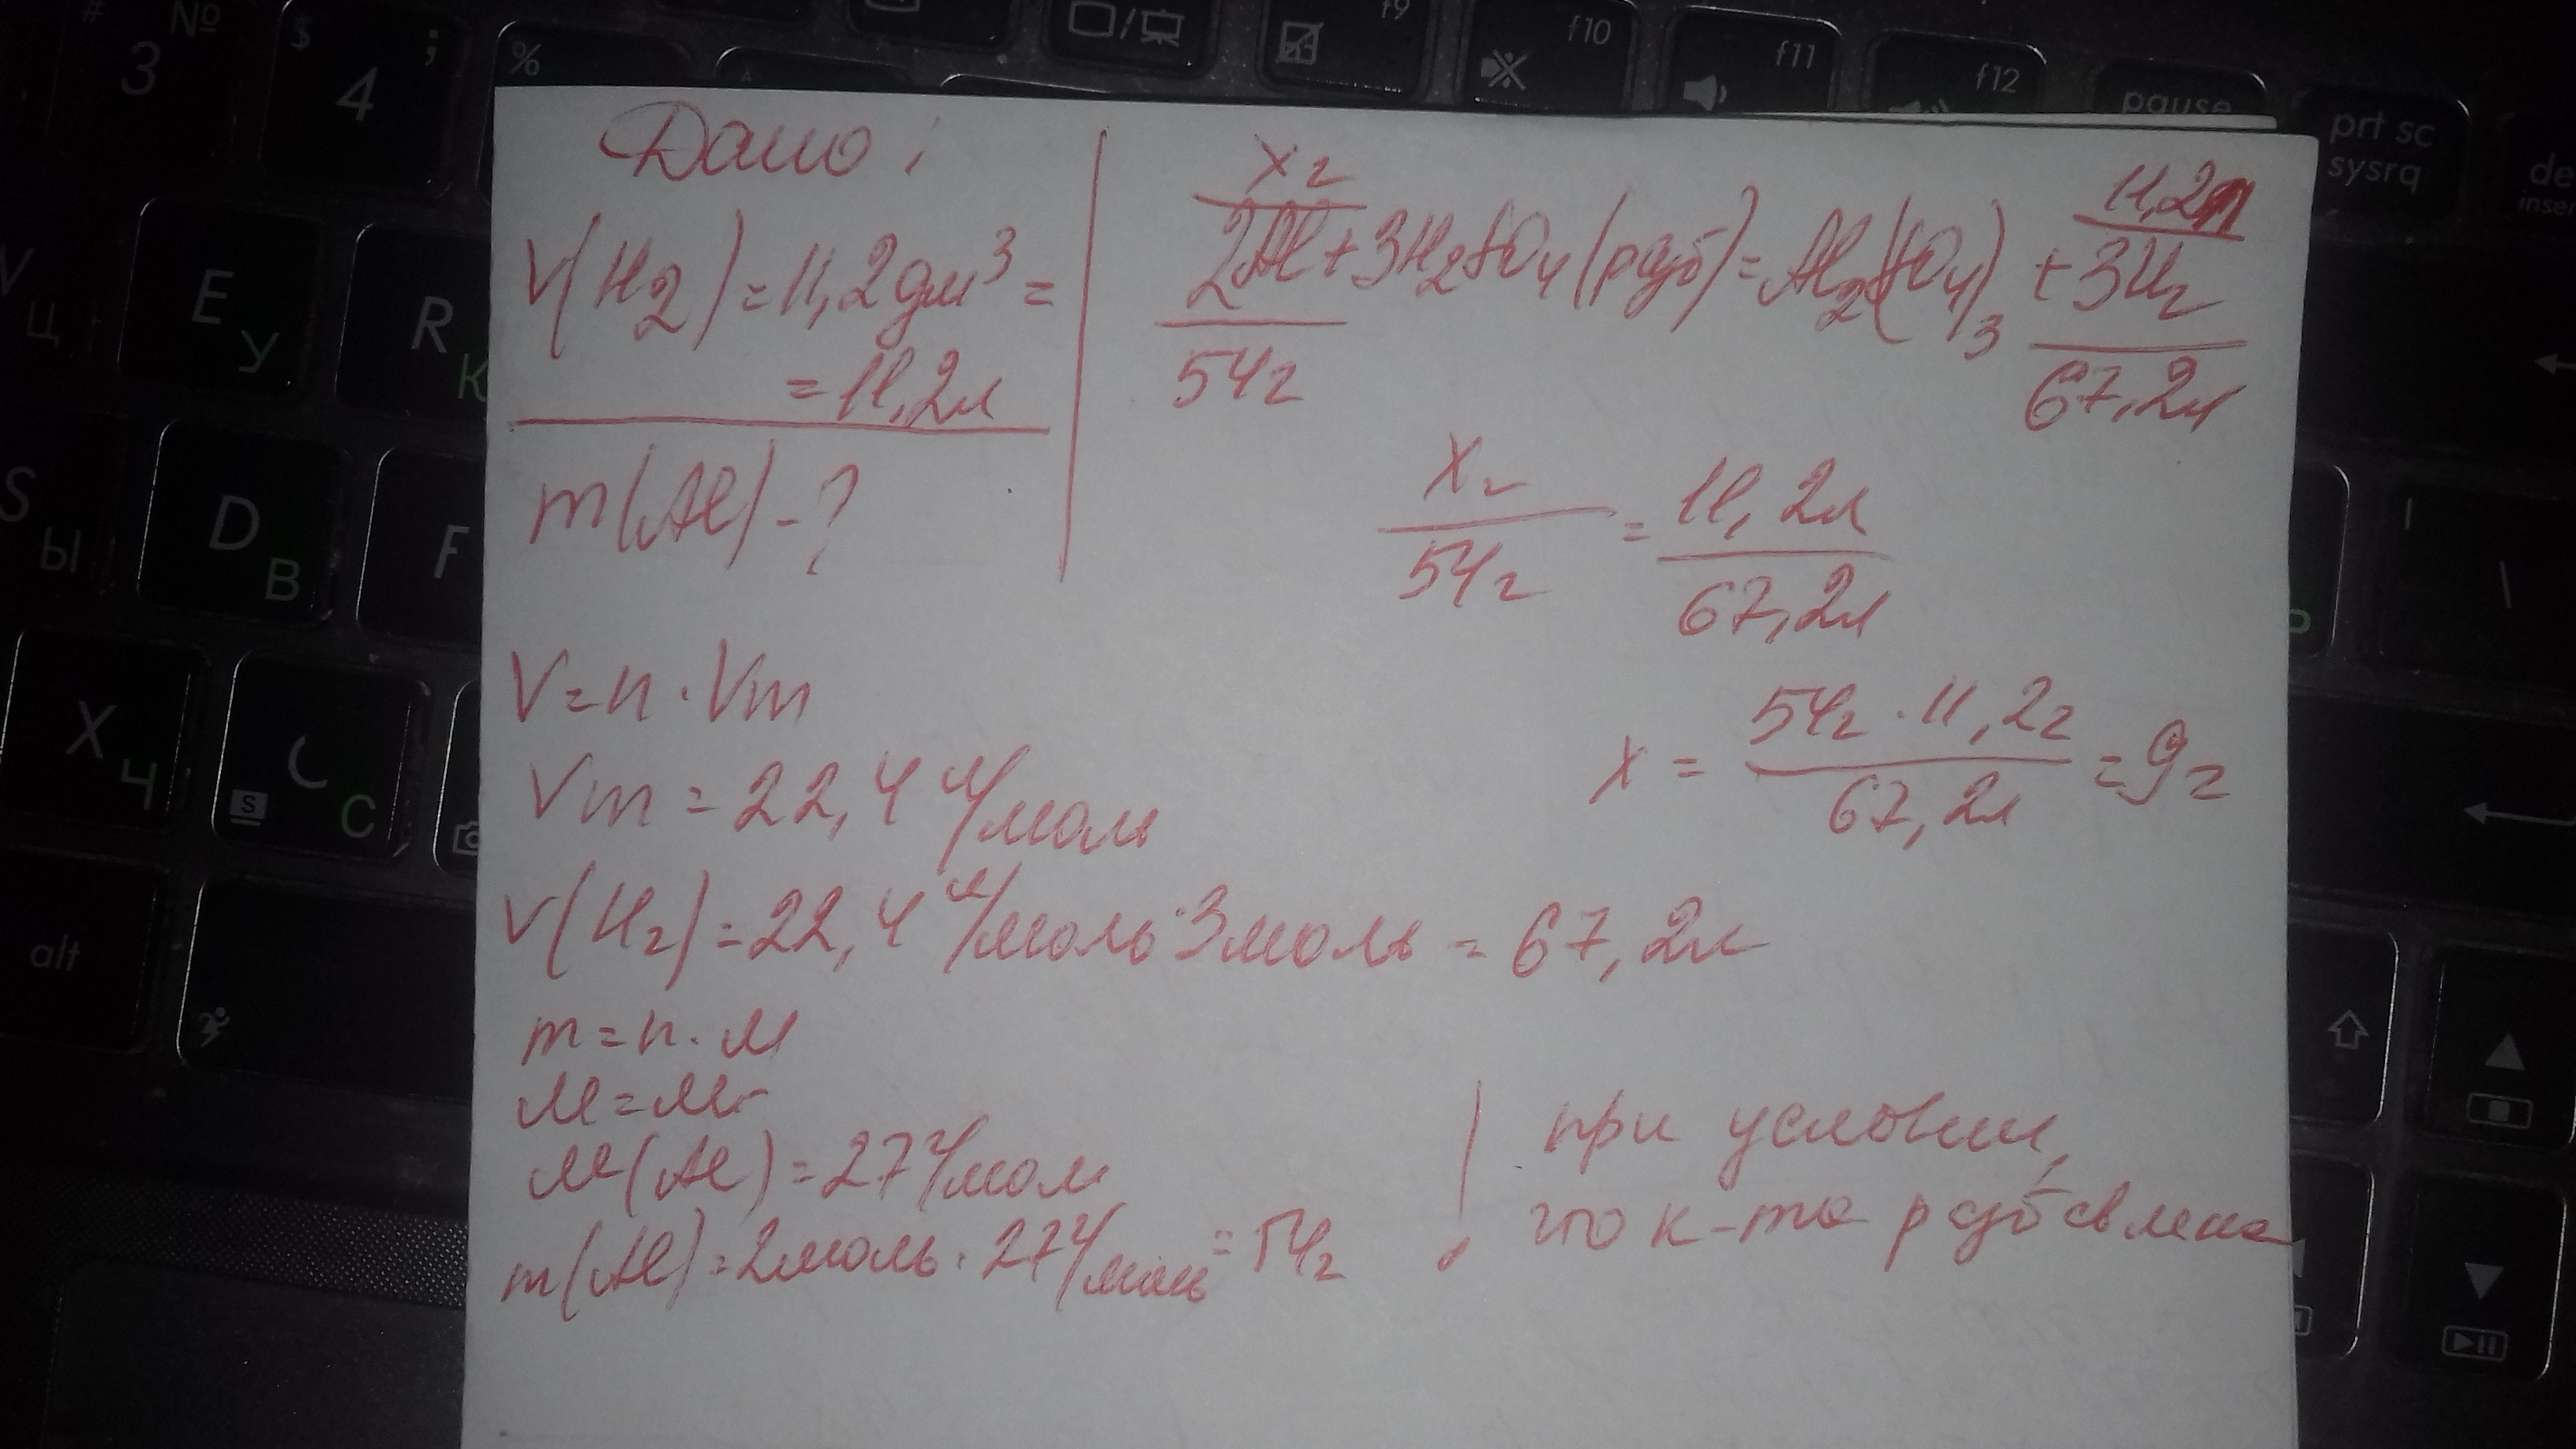 Дано:
V(H2)=11,2дм³=
=11,2л
m(Al)-?
xг 11,2л
2Al+3H2SO4(разб)=Al2(SO4)3+3H2
54г 67,2л
xг/54г = 11,2л/67,2л
x = 54г·11,2г/67,2л =9г
V=n·Vm
Vm=22,4 л/моль
V(H2)=22,4 л/моль·3моль=67,2л
m=n·M
M=Mr
M(Al)=27г/мол
m(Al)=2моль·27г/моль=54г
при условии,
что к-та разбавлена
# 3 №
$ 4 ;
%
f9
f10
f11
f12
pause
prt sc
sysrq
de
inser
Ц
E У
R К
S Ы
D В
F
X Ч
C С
S
alt